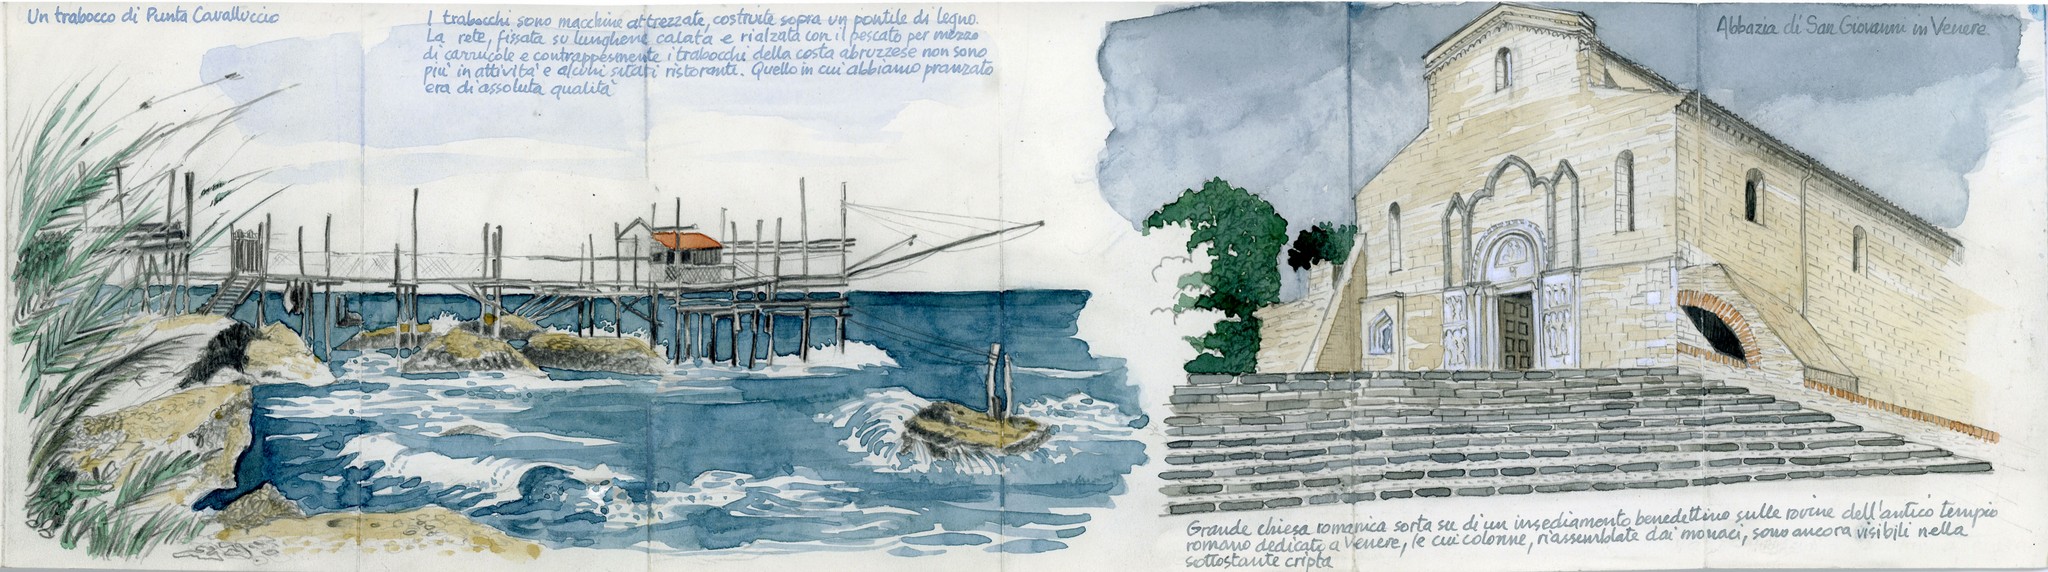 Un trabocco di Punta Cavalluccio
I trabocchi sono macchine attrezzate, costruite sopra un pontile di legno.
La rete, fissata su lunghene calata e rialzata con il pescato per mezzo
di carrucole e contrappesmente i trabocchi della costa abruzzese non sono
più in attività e alcuni sitati ristoranti. Quello in cui abbiamo pranzato
era di assoluta qualità
Abbazia di San Giovanni in Venere
Grande chiesa romanica sorta su di un insediamento benedettino sulle rovine dell'antico tempio
romano dedicato a Venere, le cui colonne, riassemblate dai monaci, sono ancora visibili nella
sottostante cripta